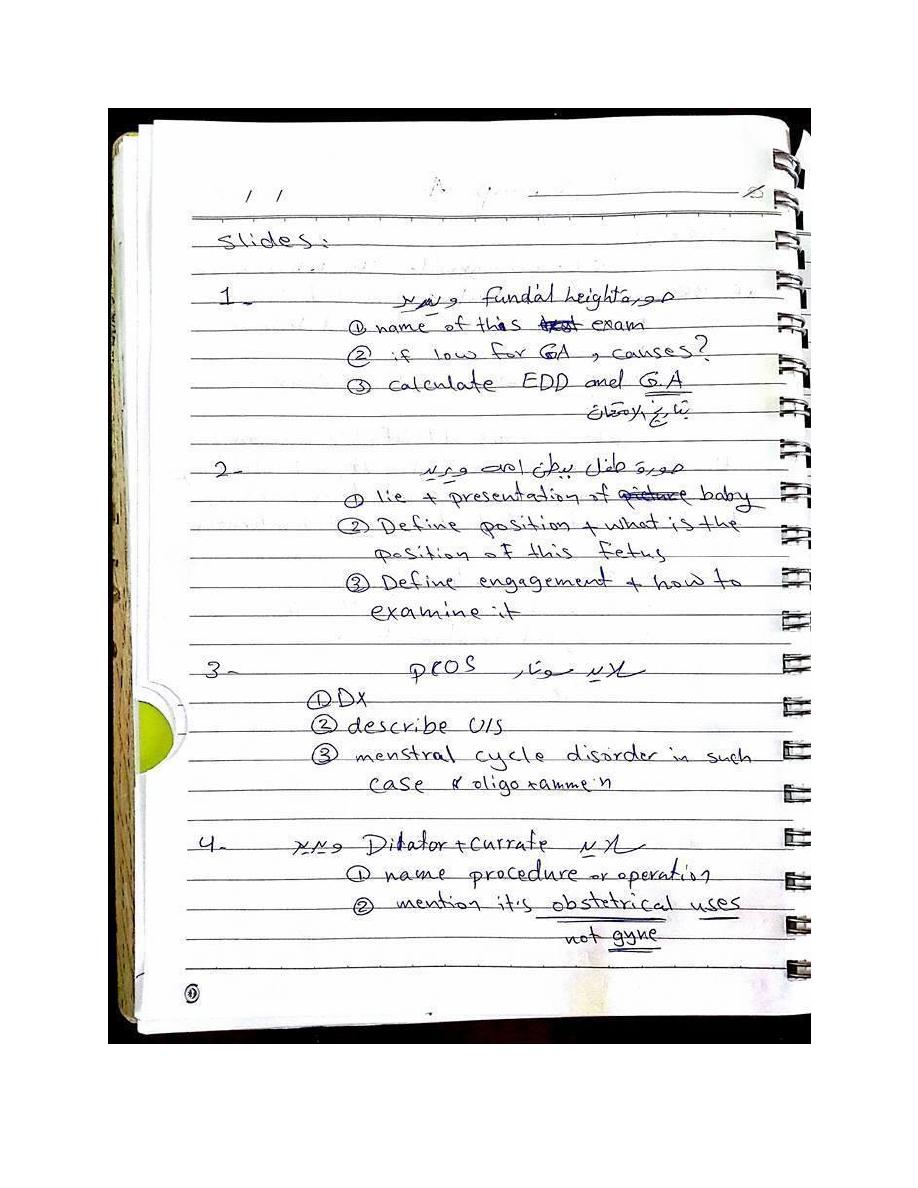 / /
Slides:
1- صورة fundal height ويريد
① name of this test exam
② if low for GA, causes?
③ calculate EDD and G.A
بتاريخ الامتحان
2- صورة طفل ببطن امه ويريد
① lie + presentation of picture baby
② Define position + what is the
position of this fetus
③ Define engagement + how to
examine it
3- سلايد سونار PCOS
① DX
② describe U/S
③ menstral cycle disorder in such
case
4- سلايد Dilator + Currate ويريد
① name procedure or operation
② mention it's obstetrical uses
not gyne